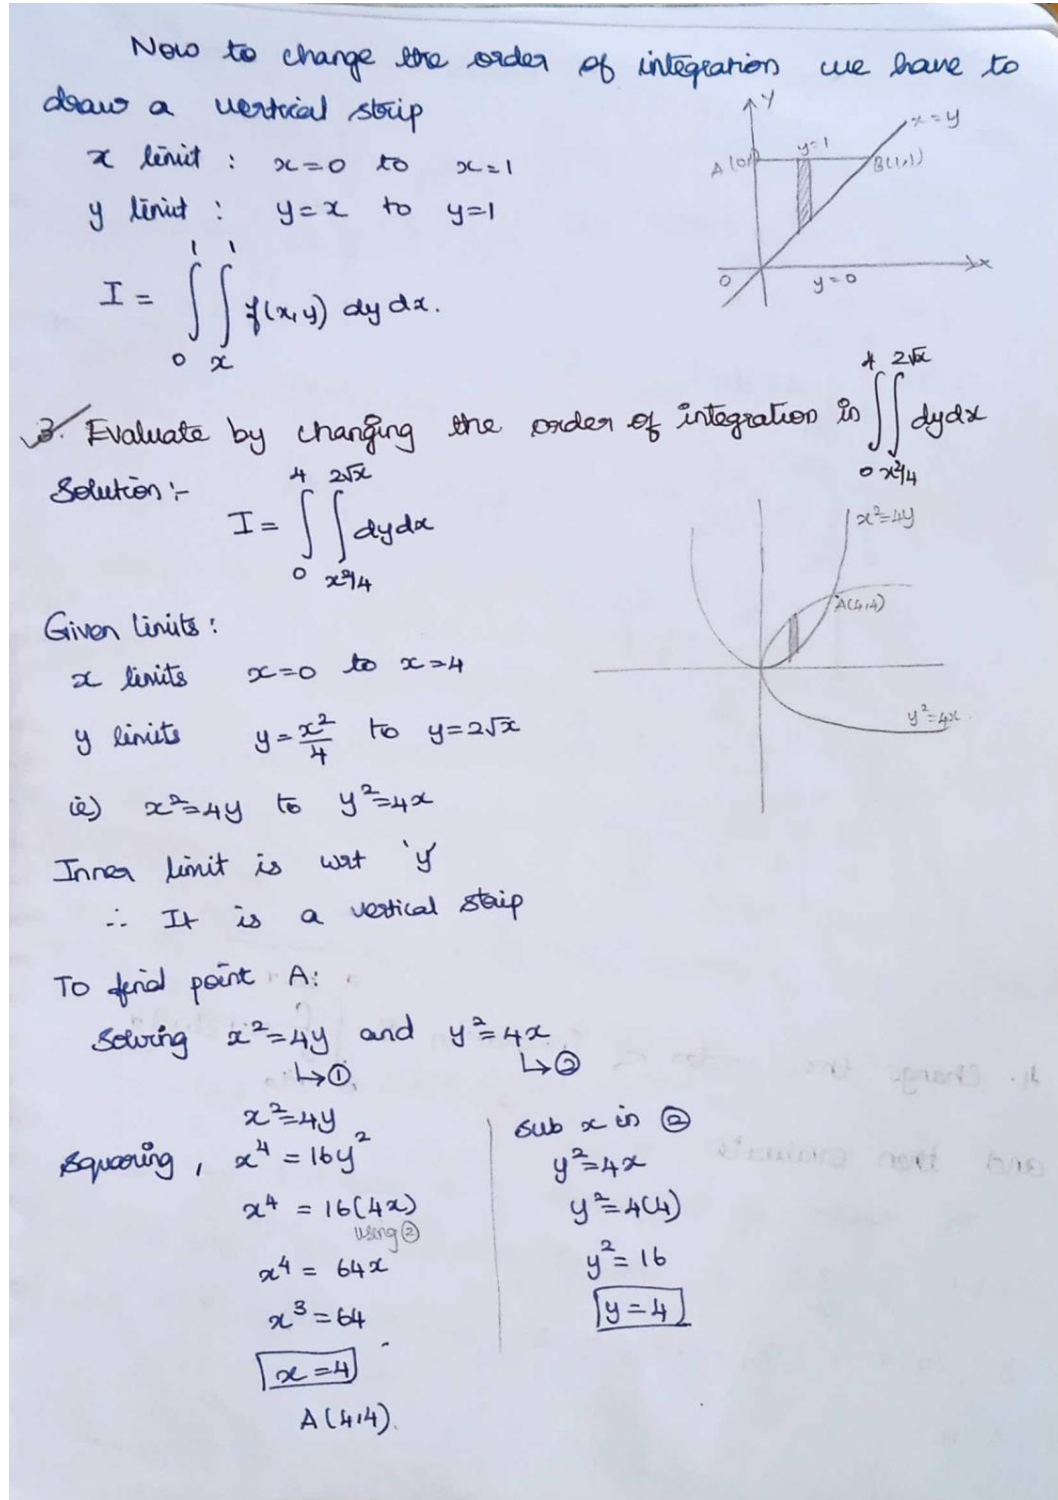 Now to change the order of integration we have to
draw a vertical strip
x limit : x=0 to x=1
y limit : y=x to y=1
I = ∫₀¹ ∫ₓ¹ f(x,y) dy dx.
Y
x=y
y=1
A(0,1)
B(1,1)
x
0
y=0
3. Evaluate by changing the order of integration in ∫₀⁴ ∫_{x²/4}^{2√x} dy dx
Solution:-
I = ∫₀⁴ ∫_{x²/4}^{2√x} dy dx
x²=4y
A(4,4)
y²=4x
Given limits:
x limits x=0 to x=4
y limits y=x²/4 to y=2√x
ie) x²=4y to y²=4x
Inner limit is wrt 'y'
∴ It is a vertical strip
To find point A:
Solving x²=4y and y²=4x
↳① ↳②
x²=4y
Squaring, x⁴ = 16y²
x⁴ = 16(4x)
using②
x⁴ = 64x
x³ = 64
x = 4
A(4,4).
Sub x in ②
y²=4x
y²=4(4)
y²=16
y=4